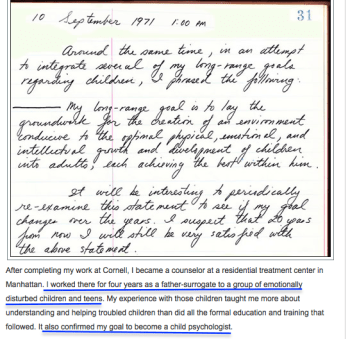 10 September 1971 1:00 AM
31
Around the same time, in an attempt
to integrate several of my long-range goals
regarding children, I phrased the following:
My long-range goal is to lay the
groundwork for the creation of an environment
conducive to the optimal physical, emotional, and
intellectual growth and development of children
into adults, each achieving the best within him.
It will be interesting to periodically
re-examine this statement to see if my goal
changes over the years. I suspect that 20 years
from now I will still be very satisfied with
the above statement.
After completing my work at Cornell, I became a counselor at a residential treatment center in
Manhattan. I worked there for four years as a father-surrogate to a group of emotionally
disturbed children and teens. My experience with those children taught me more about
understanding and helping troubled children than did all the formal education and training that
followed. It also confirmed my goal to become a child psychologist.